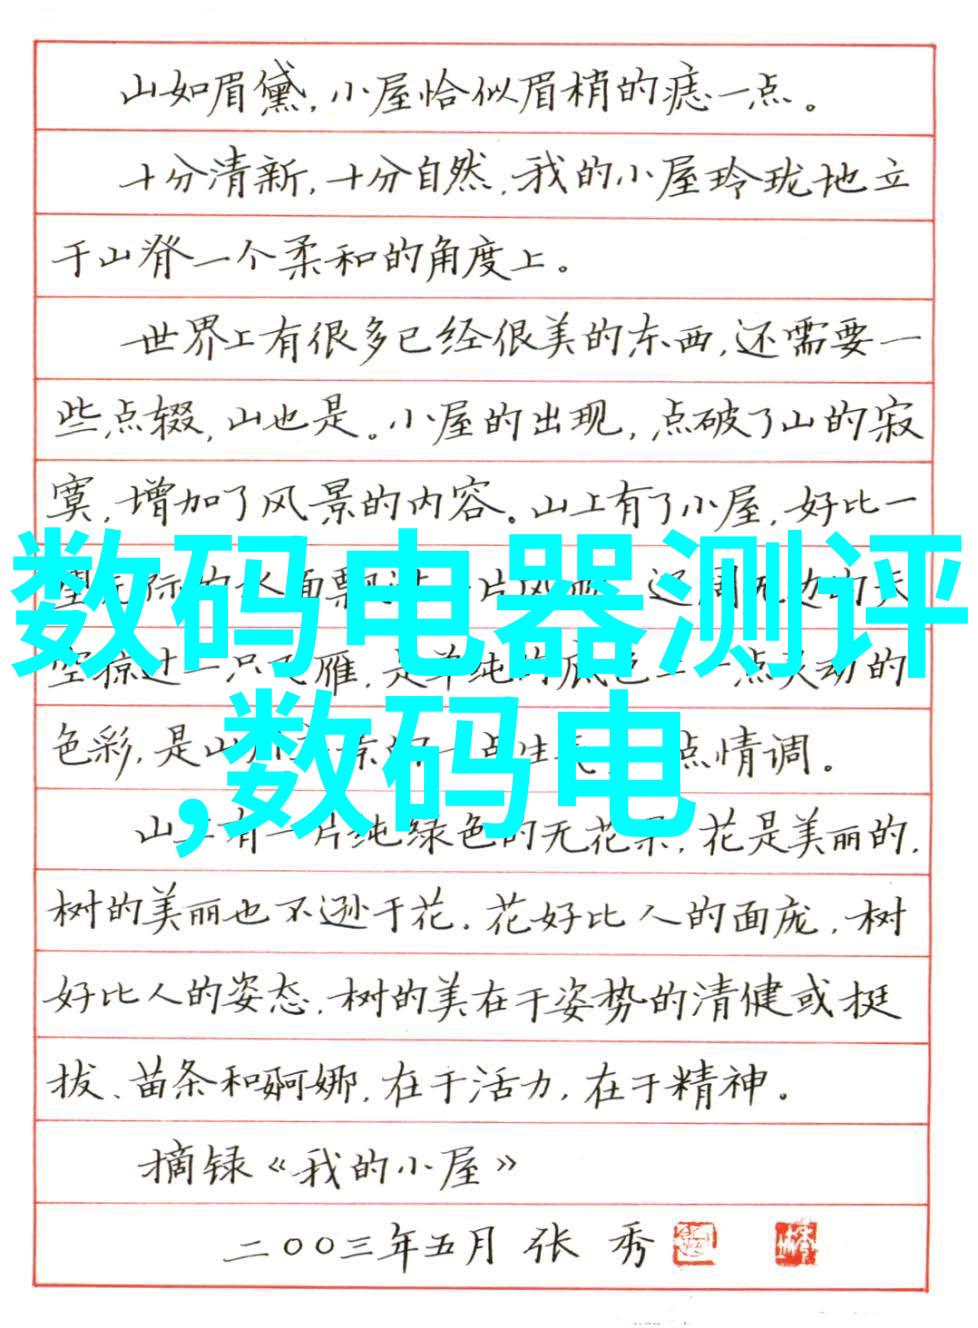 山如眉黛，小屋恰似眉梢的痣一点。
十分清新，十分自然，我的小屋玲珑地立
于山脊一个柔和的角度上。
世界上有很多已经很美的东西，还需要一
些点缀，山也是。小屋的出现，点破了山的寂
寞，增加了风景的内容。山上有了小屋，好比一
数码电器测评
空掠过一只飞雁，是单纯的底色上一点灵动的
色彩，是山 点情调。
,数码电
山上有一片纯绿色的无花果，花是美丽的，
树的美丽也不逊于花。花好比人的面庞，树
好比人的姿态，树的美在于姿势的清健或挺
拔、苗条和婀娜，在于活力，在于精神。
摘录《我的小屋》
二〇〇三年五月 张 秀